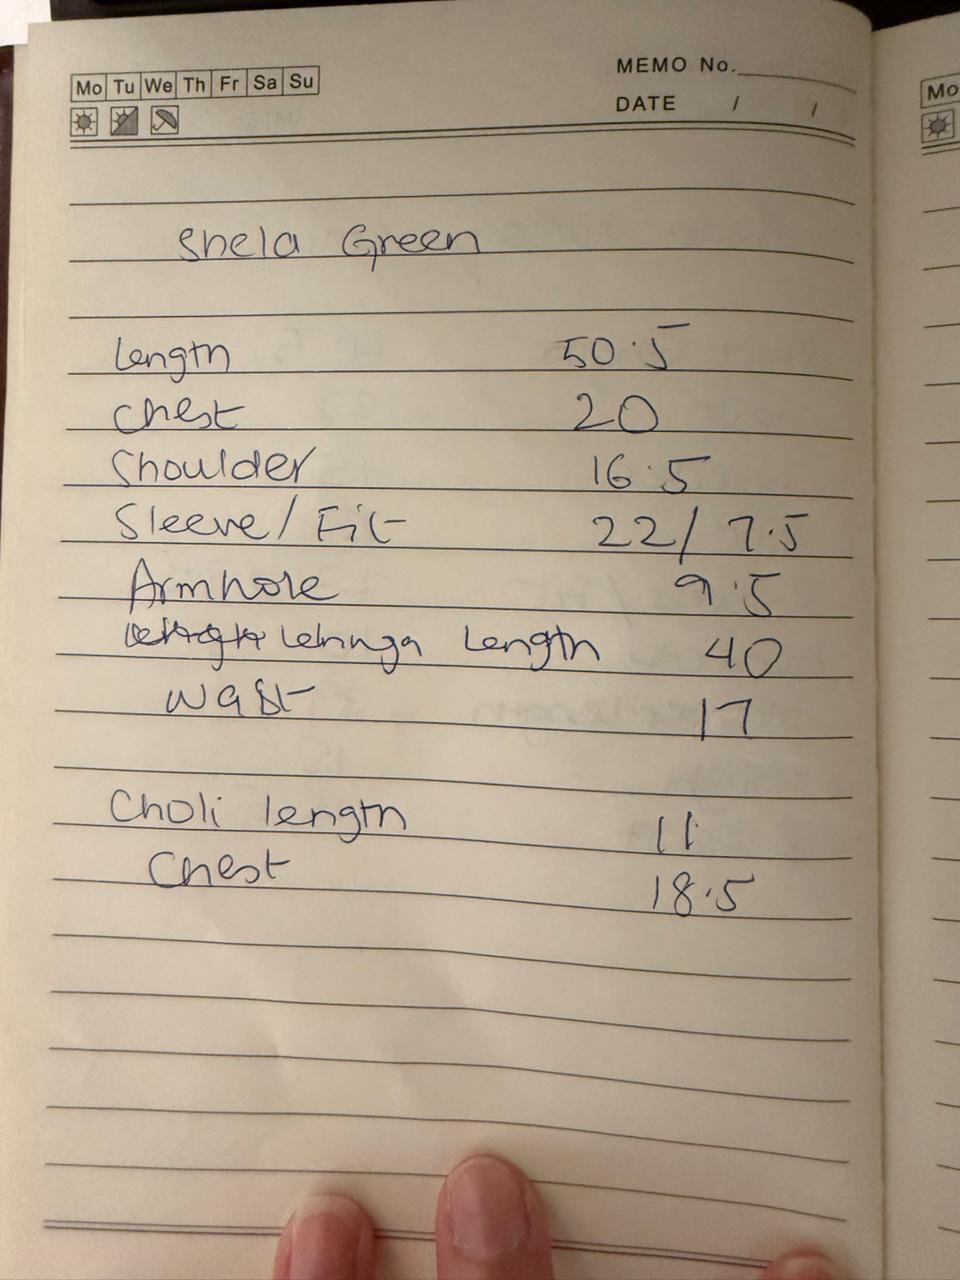 Mo Tu We Th Fr Sa Su
MEMO No.
DATE / /
Mo
Shela Green
Length 50.5
Chest 20
Shoulder 16.5
Sleeve/Fit 22/7.5
Armhole 9.5
Lehnga Length 40
Wast 17
Choli length 11
Chest 18.5